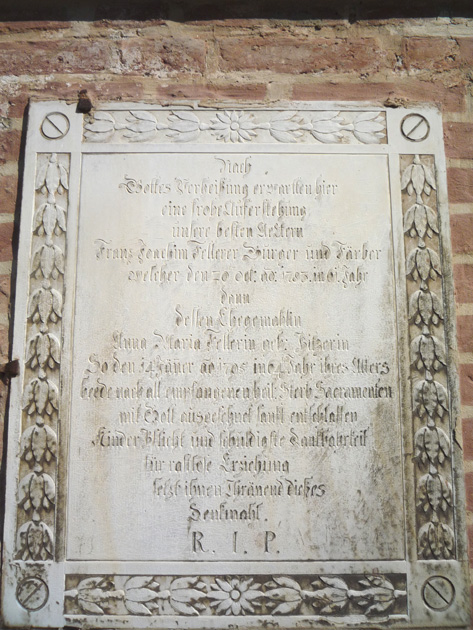 Nach
Gottes Verheißung erwarten hier
eine frohe Auferstehung
unsere besten Aeltern
Franz Joachim Fellerer Bürger und Färber
welcher den 20 oct: ao: 1783. im 61. Jahr
dann
dessen Ehegemahlin
Anna Maria Fellerin geb:
So den Jäner ao 1795 im Jahr ihres Alters
beede nach all empfangenen heil. Sterb Sacramenten
mit Gott ausgesehnet sanft entschlaffen
Kinder Pflicht und schuldigste Dankbahrkeit
für rastlose Erziehung
setzt ihnen thränend dieses
Denkmahl.
R. I. P.